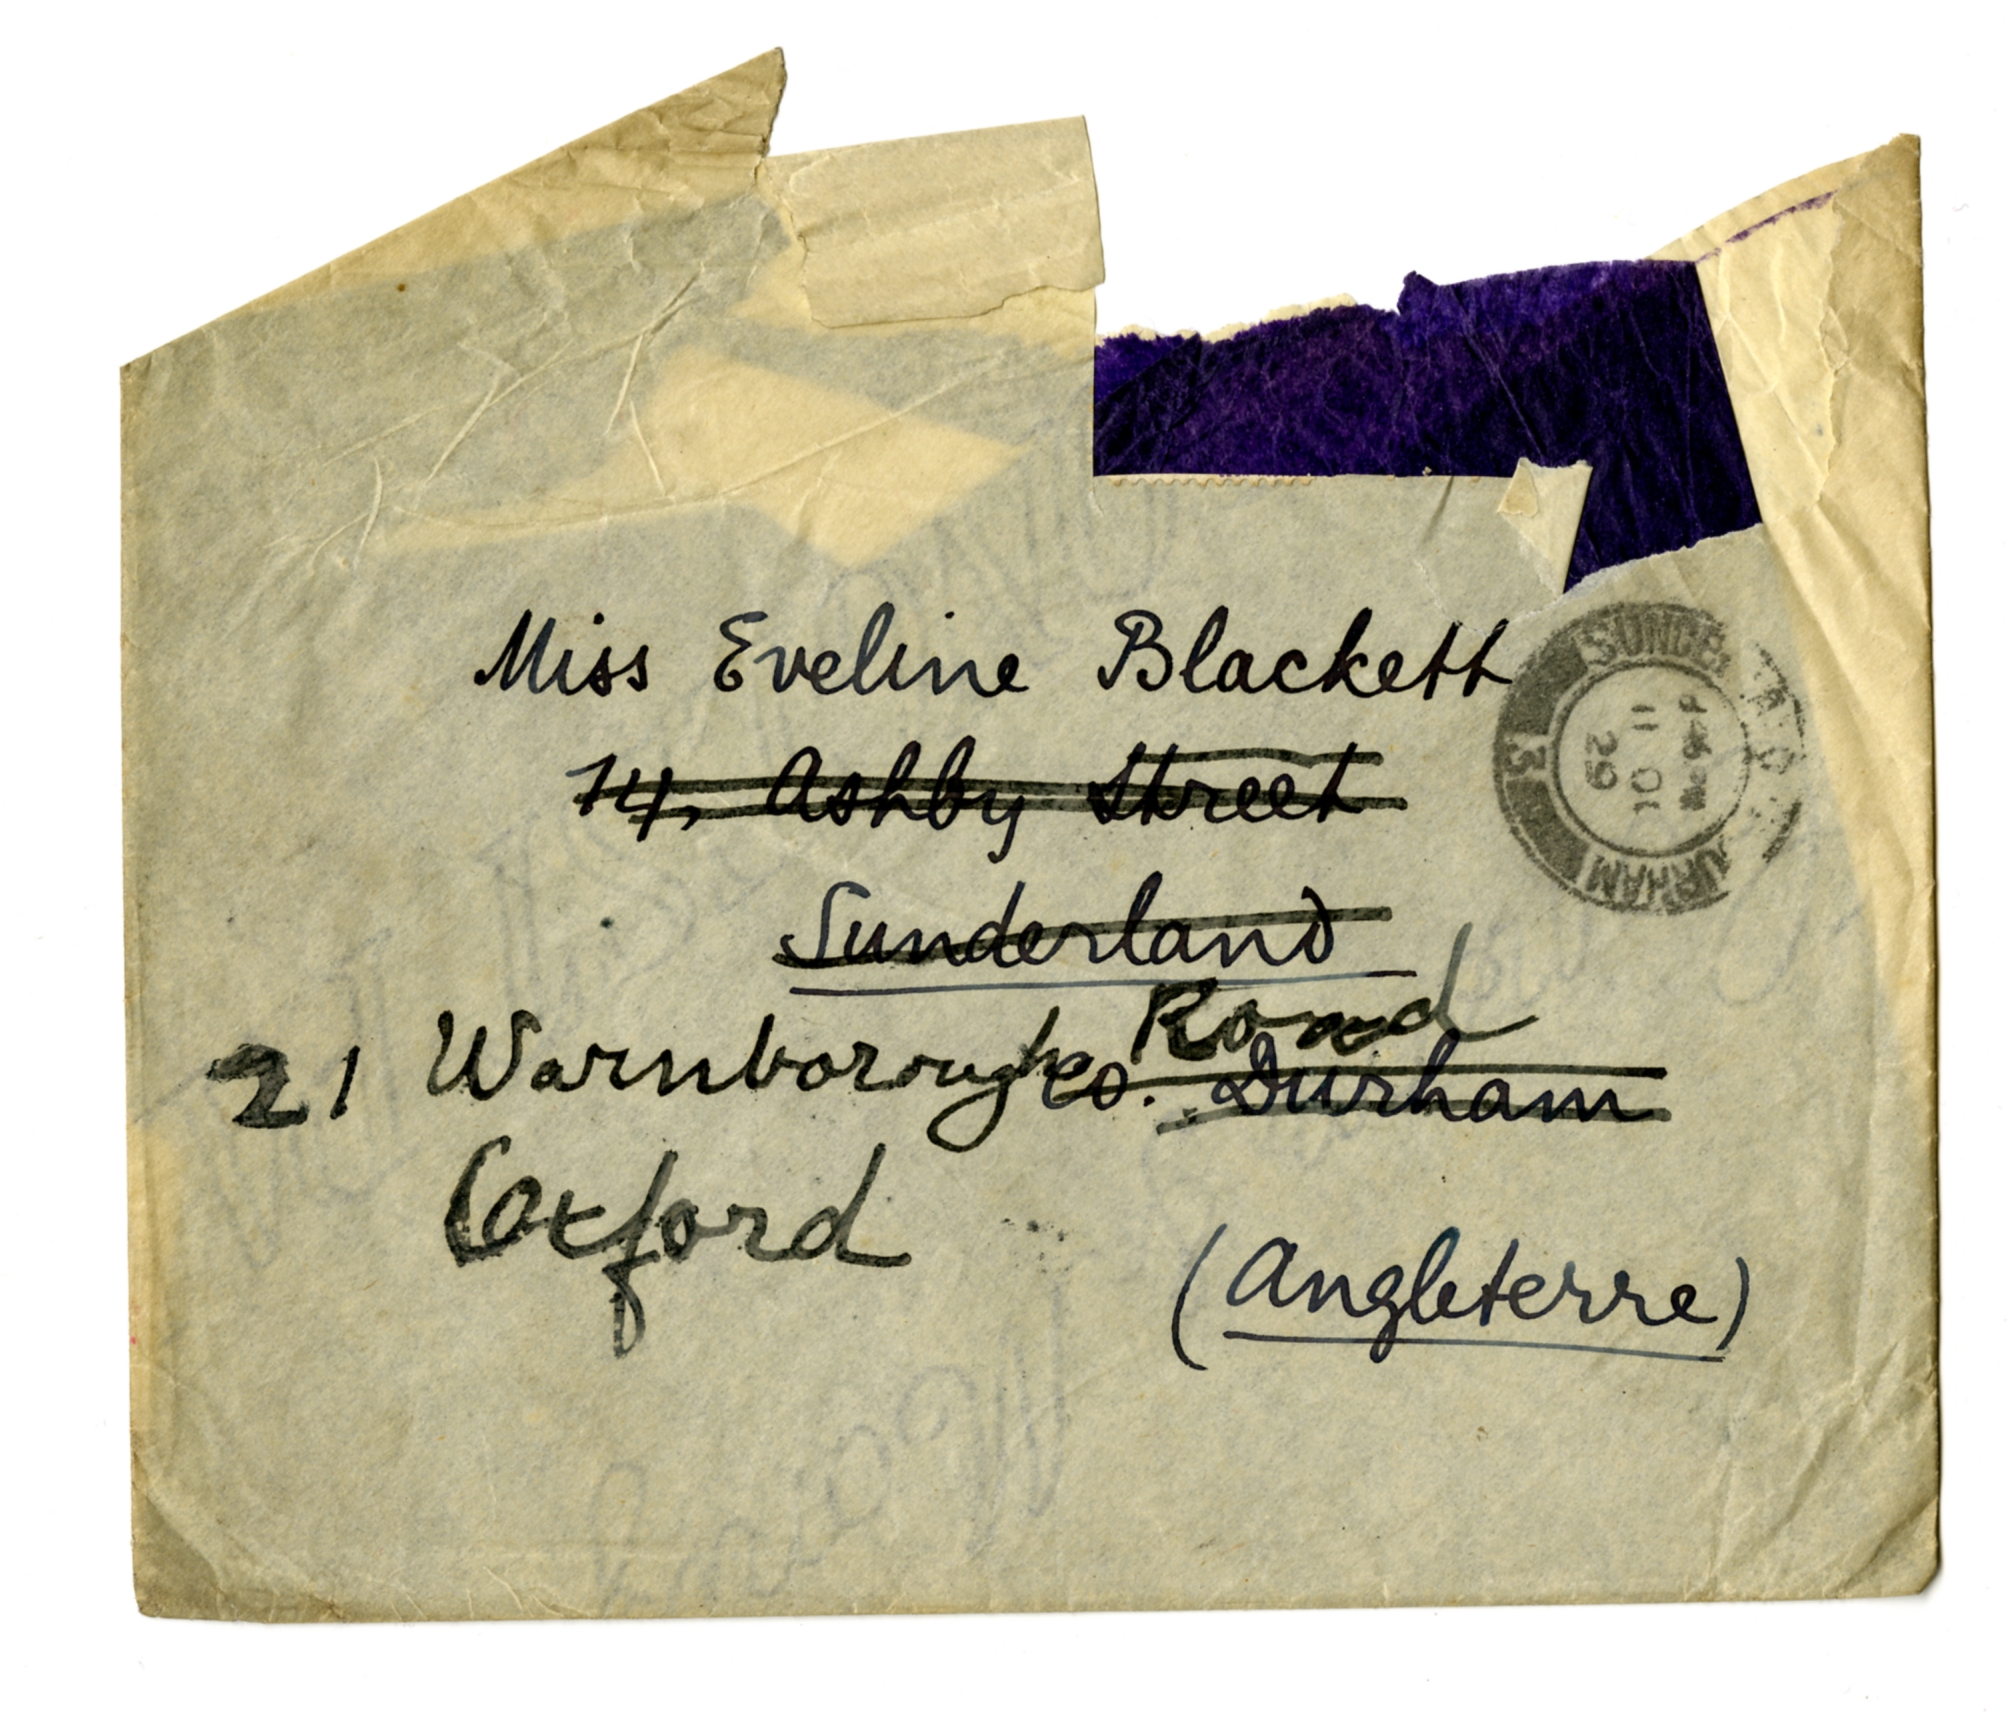 Miss Eveline Blackett
14, Ashby Street
Sunderland
21 Warnborough Road
Co. Durham
Oxford
(Angleterre)
13
11 10
29